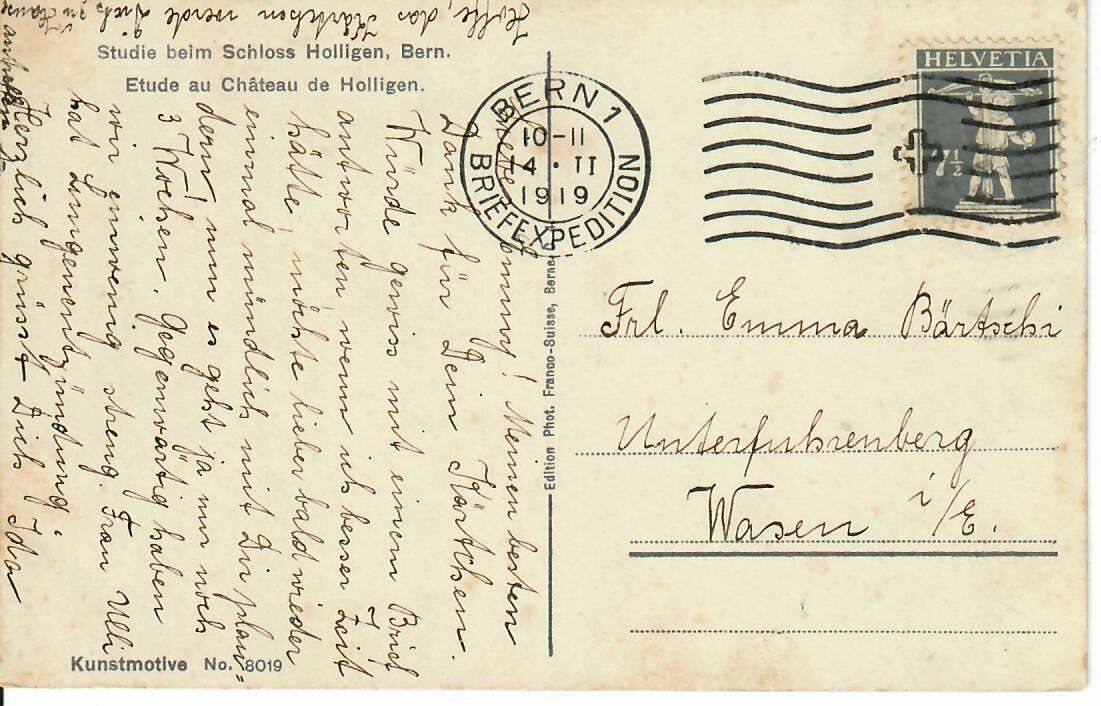 Studie beim Schloss Holligen, Bern.
Etude au Château de Holligen.
BERN 1
10-11
14 • II
1919
BRIEFEXPEDITION
HELVETIA
7½
Emmy! Meinen besten
Dank für Dein Kärtchen.
Würde gewiss mit einem Brief
antworten, wenn ich besser Zeit
hätte, möchte lieber bald wieder
einmal mündlich mit Dir plau-
dern! nun es geht ja nur noch
3 Wochen. Gegenwärtig haben
wir einwenig streng. Frau Ulli
hat Lungenentzündung.
Herzlich grüsst Dich Ida
Hoffe, das Kärtchen werde Dich zu Hause
antreffen.
Edition Phot. Franco-Suisse, Berne.
Frl. Emma Bärtschi
Unterfuhrenberg
Wasen i/E.
Kunstmotive No. 8019